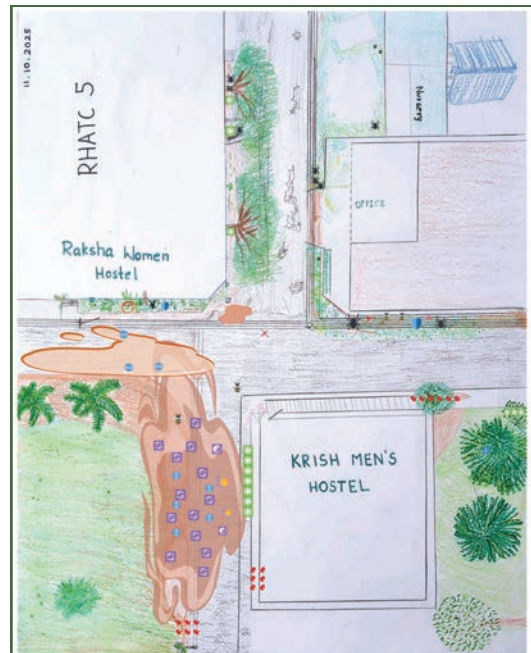 11.10.2025
RHATC 5
Nursery
OFFICE
Raksha Women
Hostel
KRISH MEN'S
HOSTEL